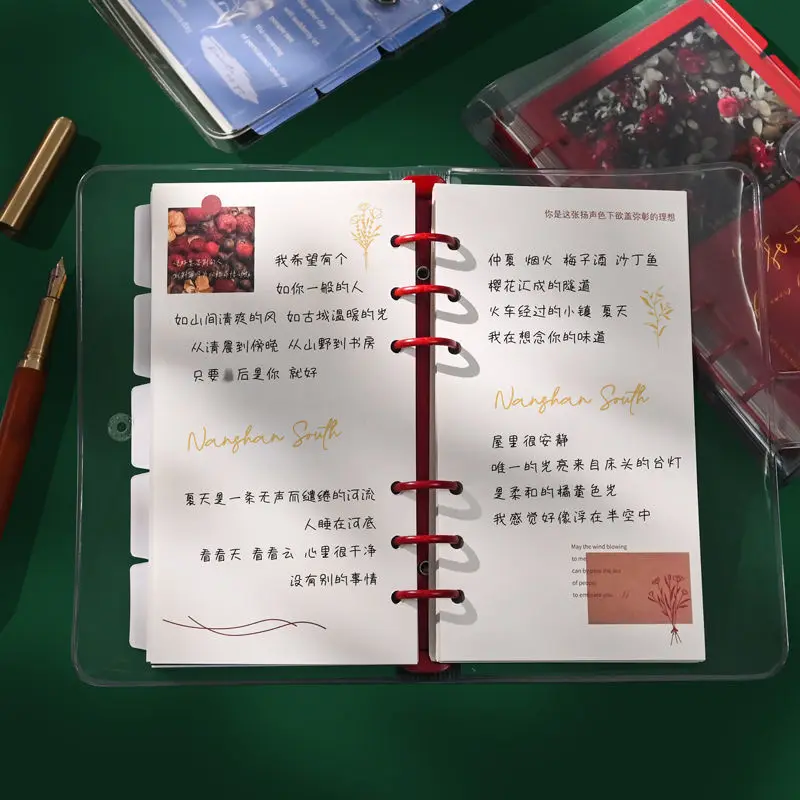 我希望有个
如你一般的人
如山间清爽的风 如古城温暖的光
从清晨到傍晚 从山野到书房
只要 后是你 就好
Nanshan South
夏天是一条无声而缱绻的河流
人睡在河底
看看天 看看云 心里很干净
没有别的事情
你是这张扬声色下欲盖弥彰的理想
仲夏 烟火 梅子酒 沙丁鱼
樱花汇成的隧道
火车经过的小镇 夏天
我在想念你的味道
Nanshan South
屋里很安静
唯一的光亮来自床头的台灯
是柔和的橘黄色光
我感觉好像浮在半空中
May the wind blowing
to me
can bypass the sea
of people
to embrace you